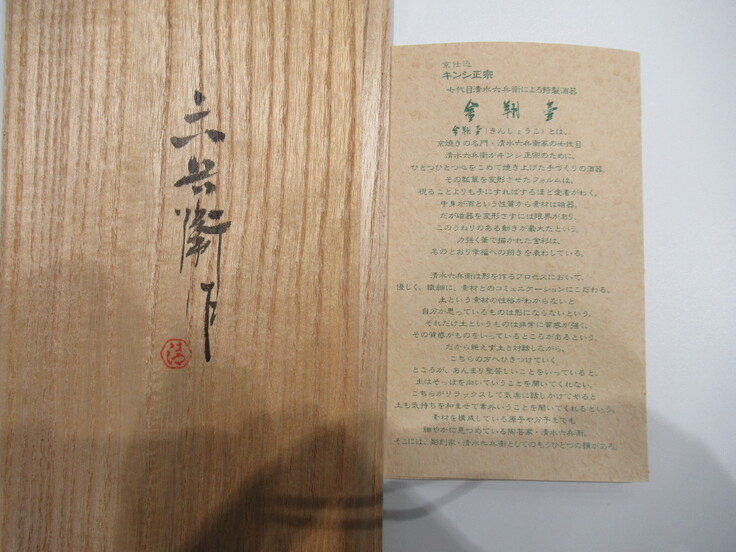 六兵衛作
京仕込
キンシ正宗
七代目清水六兵衛による特製酒器
金翔壺
金翔壺(きんしょうこ)とは、
京焼きの名門・清水六兵衛家の七代目
清水六兵衛がキンシ正宗のために、
ひとつひとつ心をこめて焼き上げた手づくりの酒器。
その瓢箪を変形させたフォルムは、
視ることよりも手にすればするほど愛着がわく。
中身が酒という性質から素材は磁器。
だが磁器を変形さすには限界があり、
このうねりのある動きが最大だという。
力強く筆で描かれた金彩は、
名のとおり幸福への招きを表わしている。
清水六兵衛は形を作るプロセスにおいて、
優しく、繊細に、素材とのコミュニケーションにこだわる。
土という素材の性格がわからないと
自分が思っているものは形にならないという。
それだけ土というものは非常に質感が強く、
その質感がものをいっているところがあるという。
だから絶えず土と対話しながら、
こちらの方へひきつけていく。
ところが、あんまり堅苦しいことをいっていると、
土はそっぽを向いていうことを聞いてくれない。
こちらがリラックスして気楽に話しかけてやると
土も気持ちを和ませて案外いうことを聞いてくれるという。
素材を構成している原子や分子までも
細やかに見つめている陶芸家・清水六兵衛。
そこには、彫刻家・清水九兵衛としてのもうひとつの顔がある。